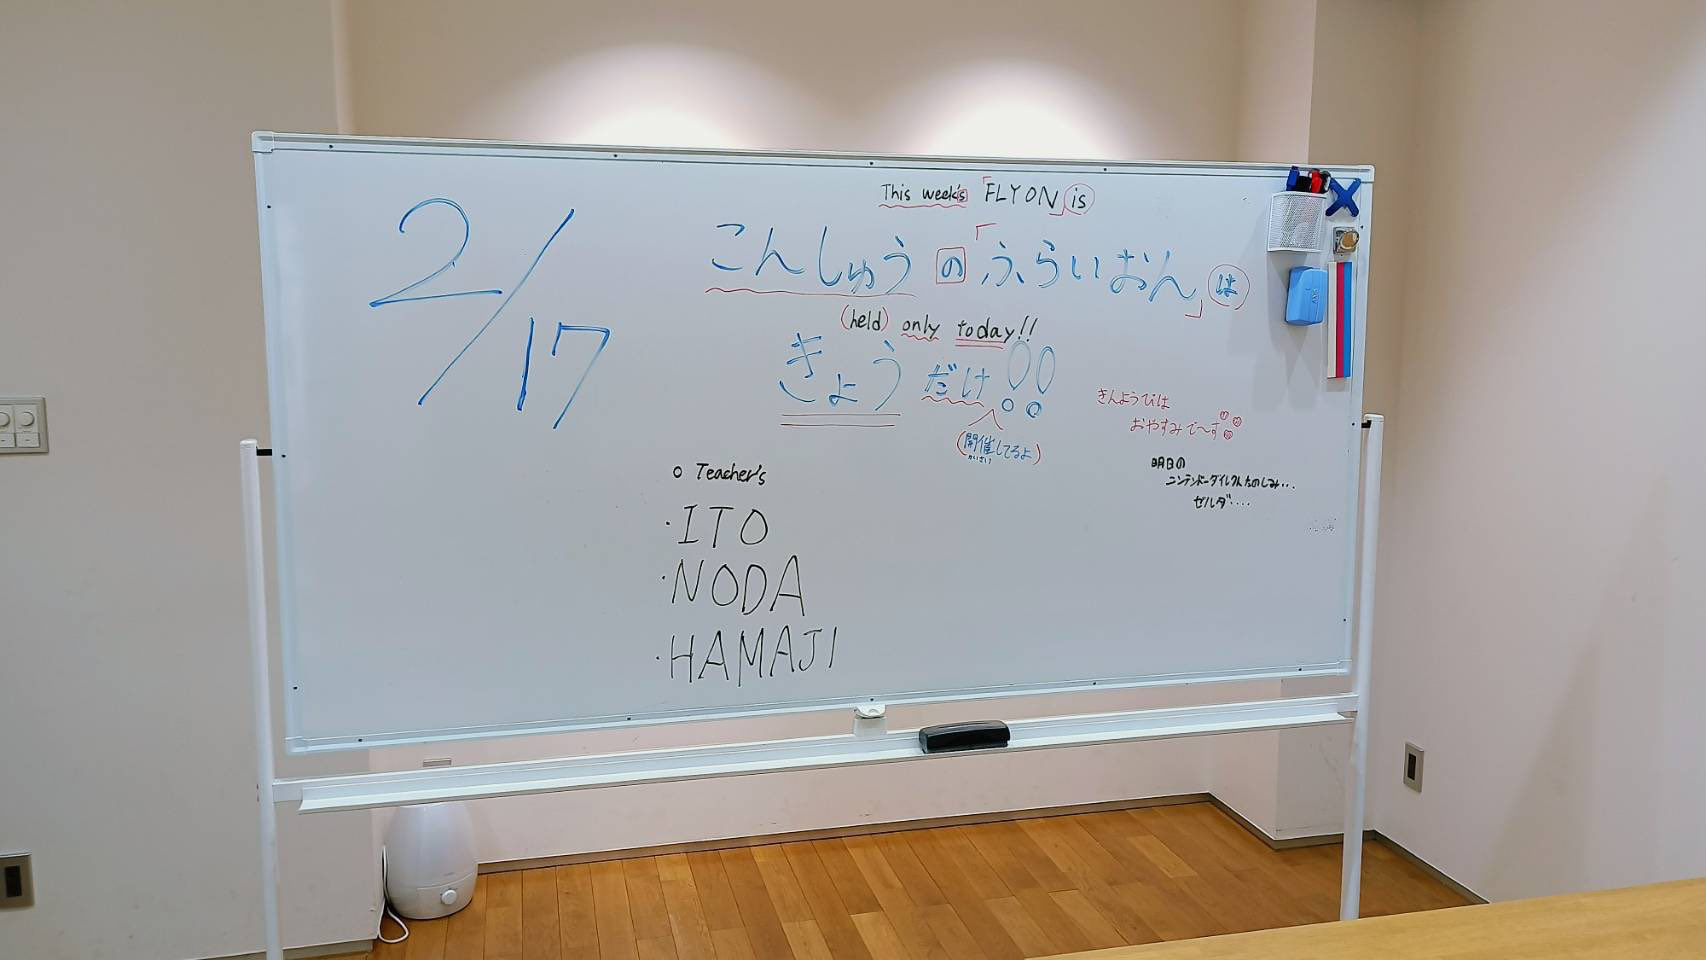 2/17
This week's 「FLYON」 is
こんしゅうの「ふらいおん」は
(held) only today!!
きょうだけ!!
(開催してるよ)
かいさい
きんようびは
おやすみで〜す♡♡♡
明日の
ニンテンドーダイレクトたのしみ...
ゼルダ....
○ Teacher's
・ITO
・NODA
・HAMAJI